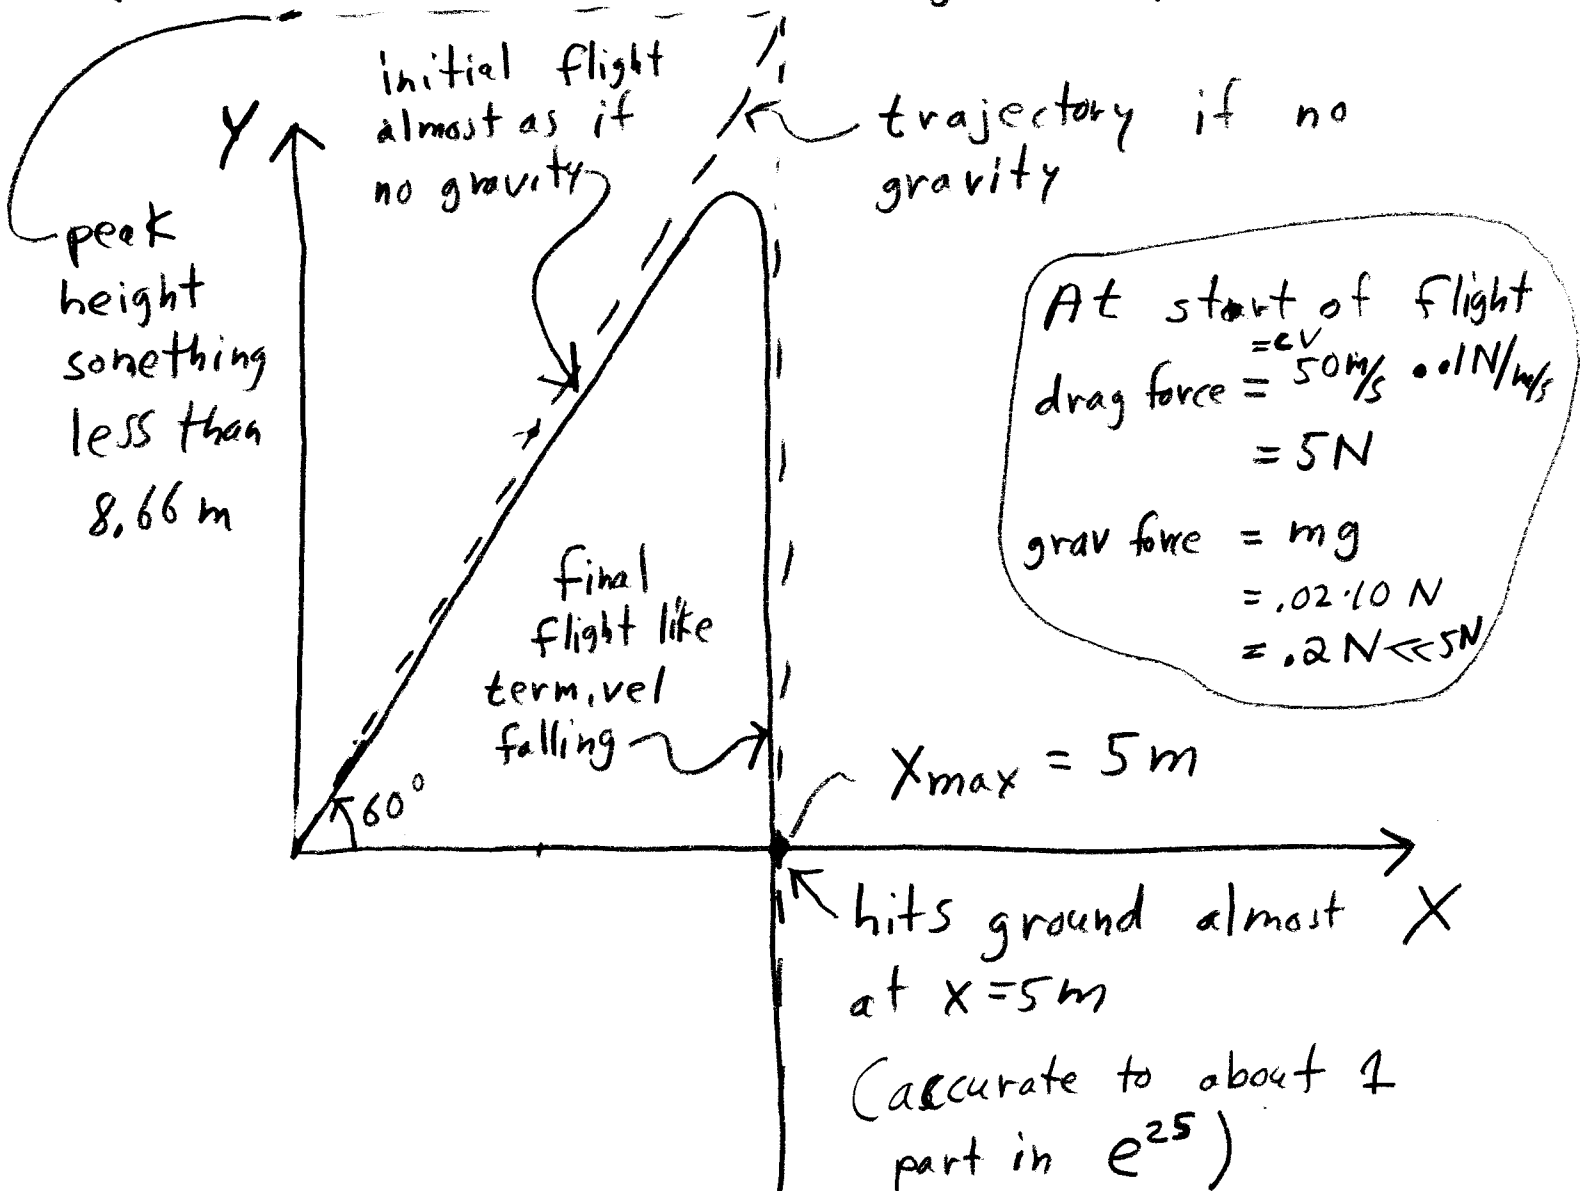 initial flight
almost as if
no gravity
Y
trajectory if no
gravity
peak
height
something
less than
8.66 m
At start of flight
= cv
drag force = 50 m/s · .1N/m/s
= 5N
grav force = mg
= .02·10 N
= .2 N << 5N
final
flight like
term. vel
falling
60°
Xmax = 5m
hits ground almost
at x = 5m
X
(accurate to about 1
part in e^25)